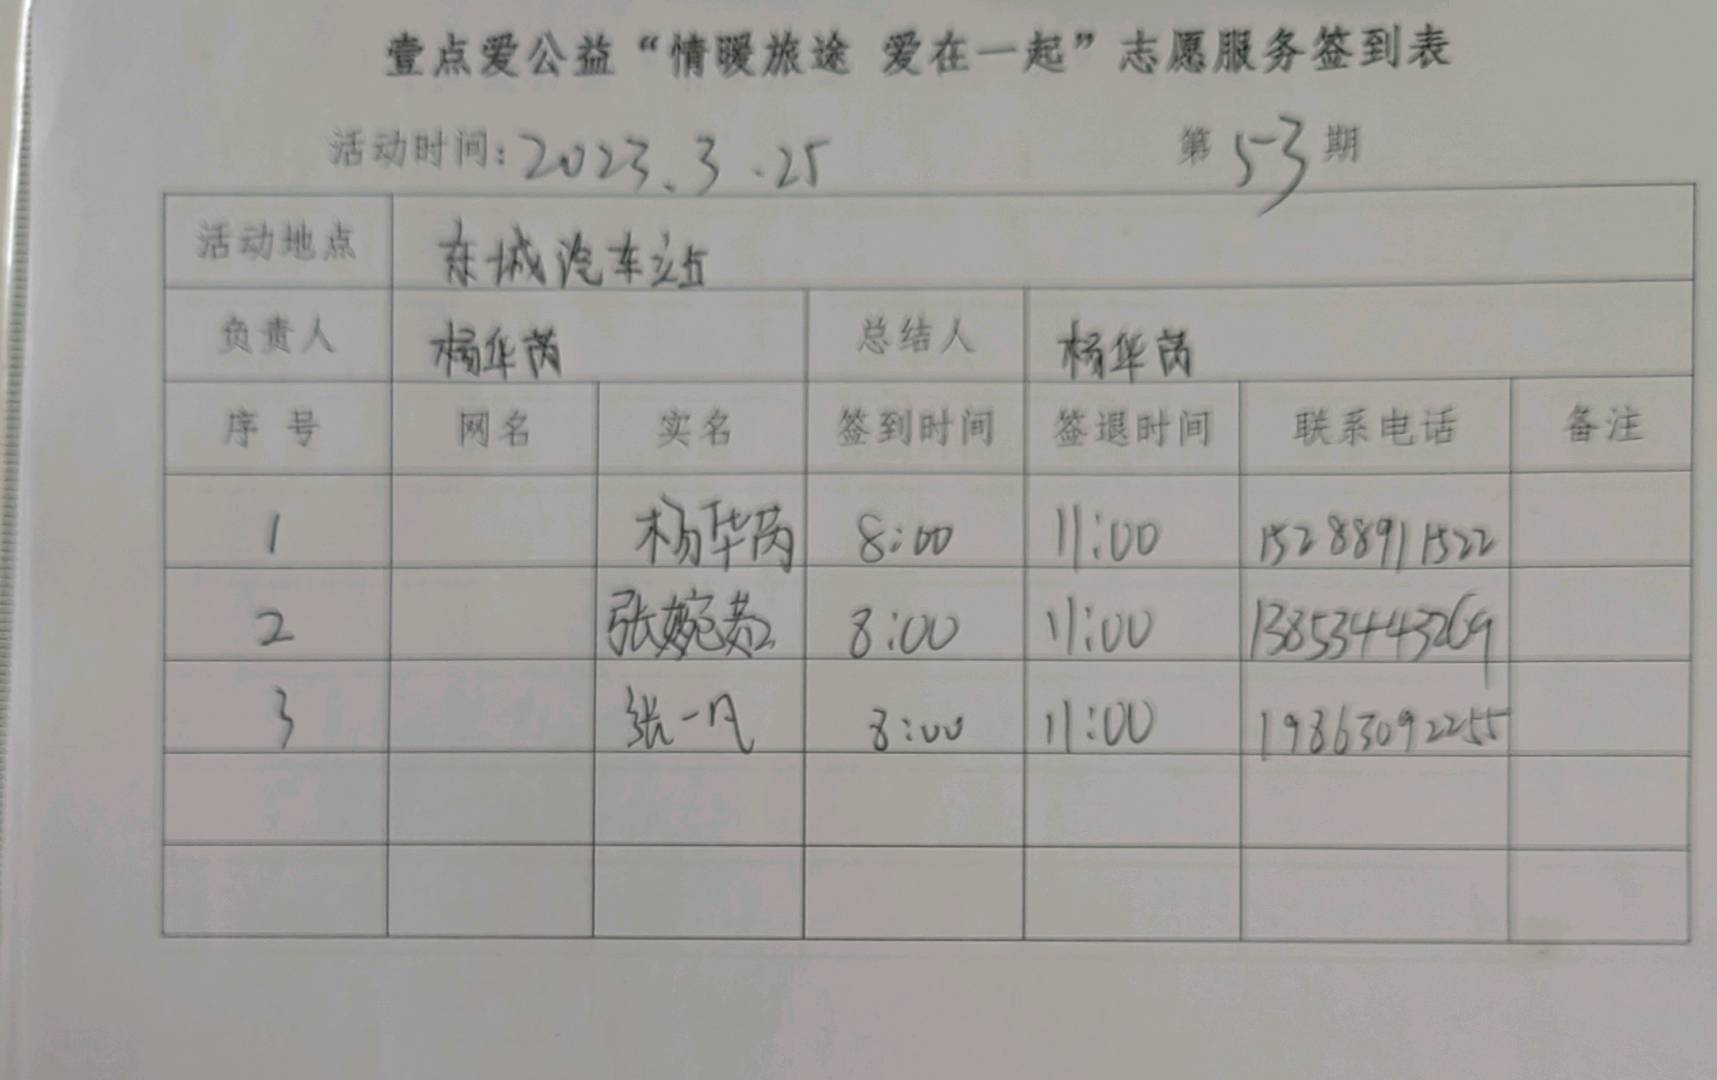 壹点爱公益“情暖旅途 爱在一起”志愿服务签到表
活动时间：2023.3.25 第53期
活动地点 东城汽车站
负责人 杨华芮 总结人 杨华芮
序号 网名 实名 签到时间 签退时间 联系电话 备注
1 杨华芮 8:00 11:00 15288911522
2 张婉 8:00 11:00 13853443269
3 张一凡 8:00 11:00 19863092255